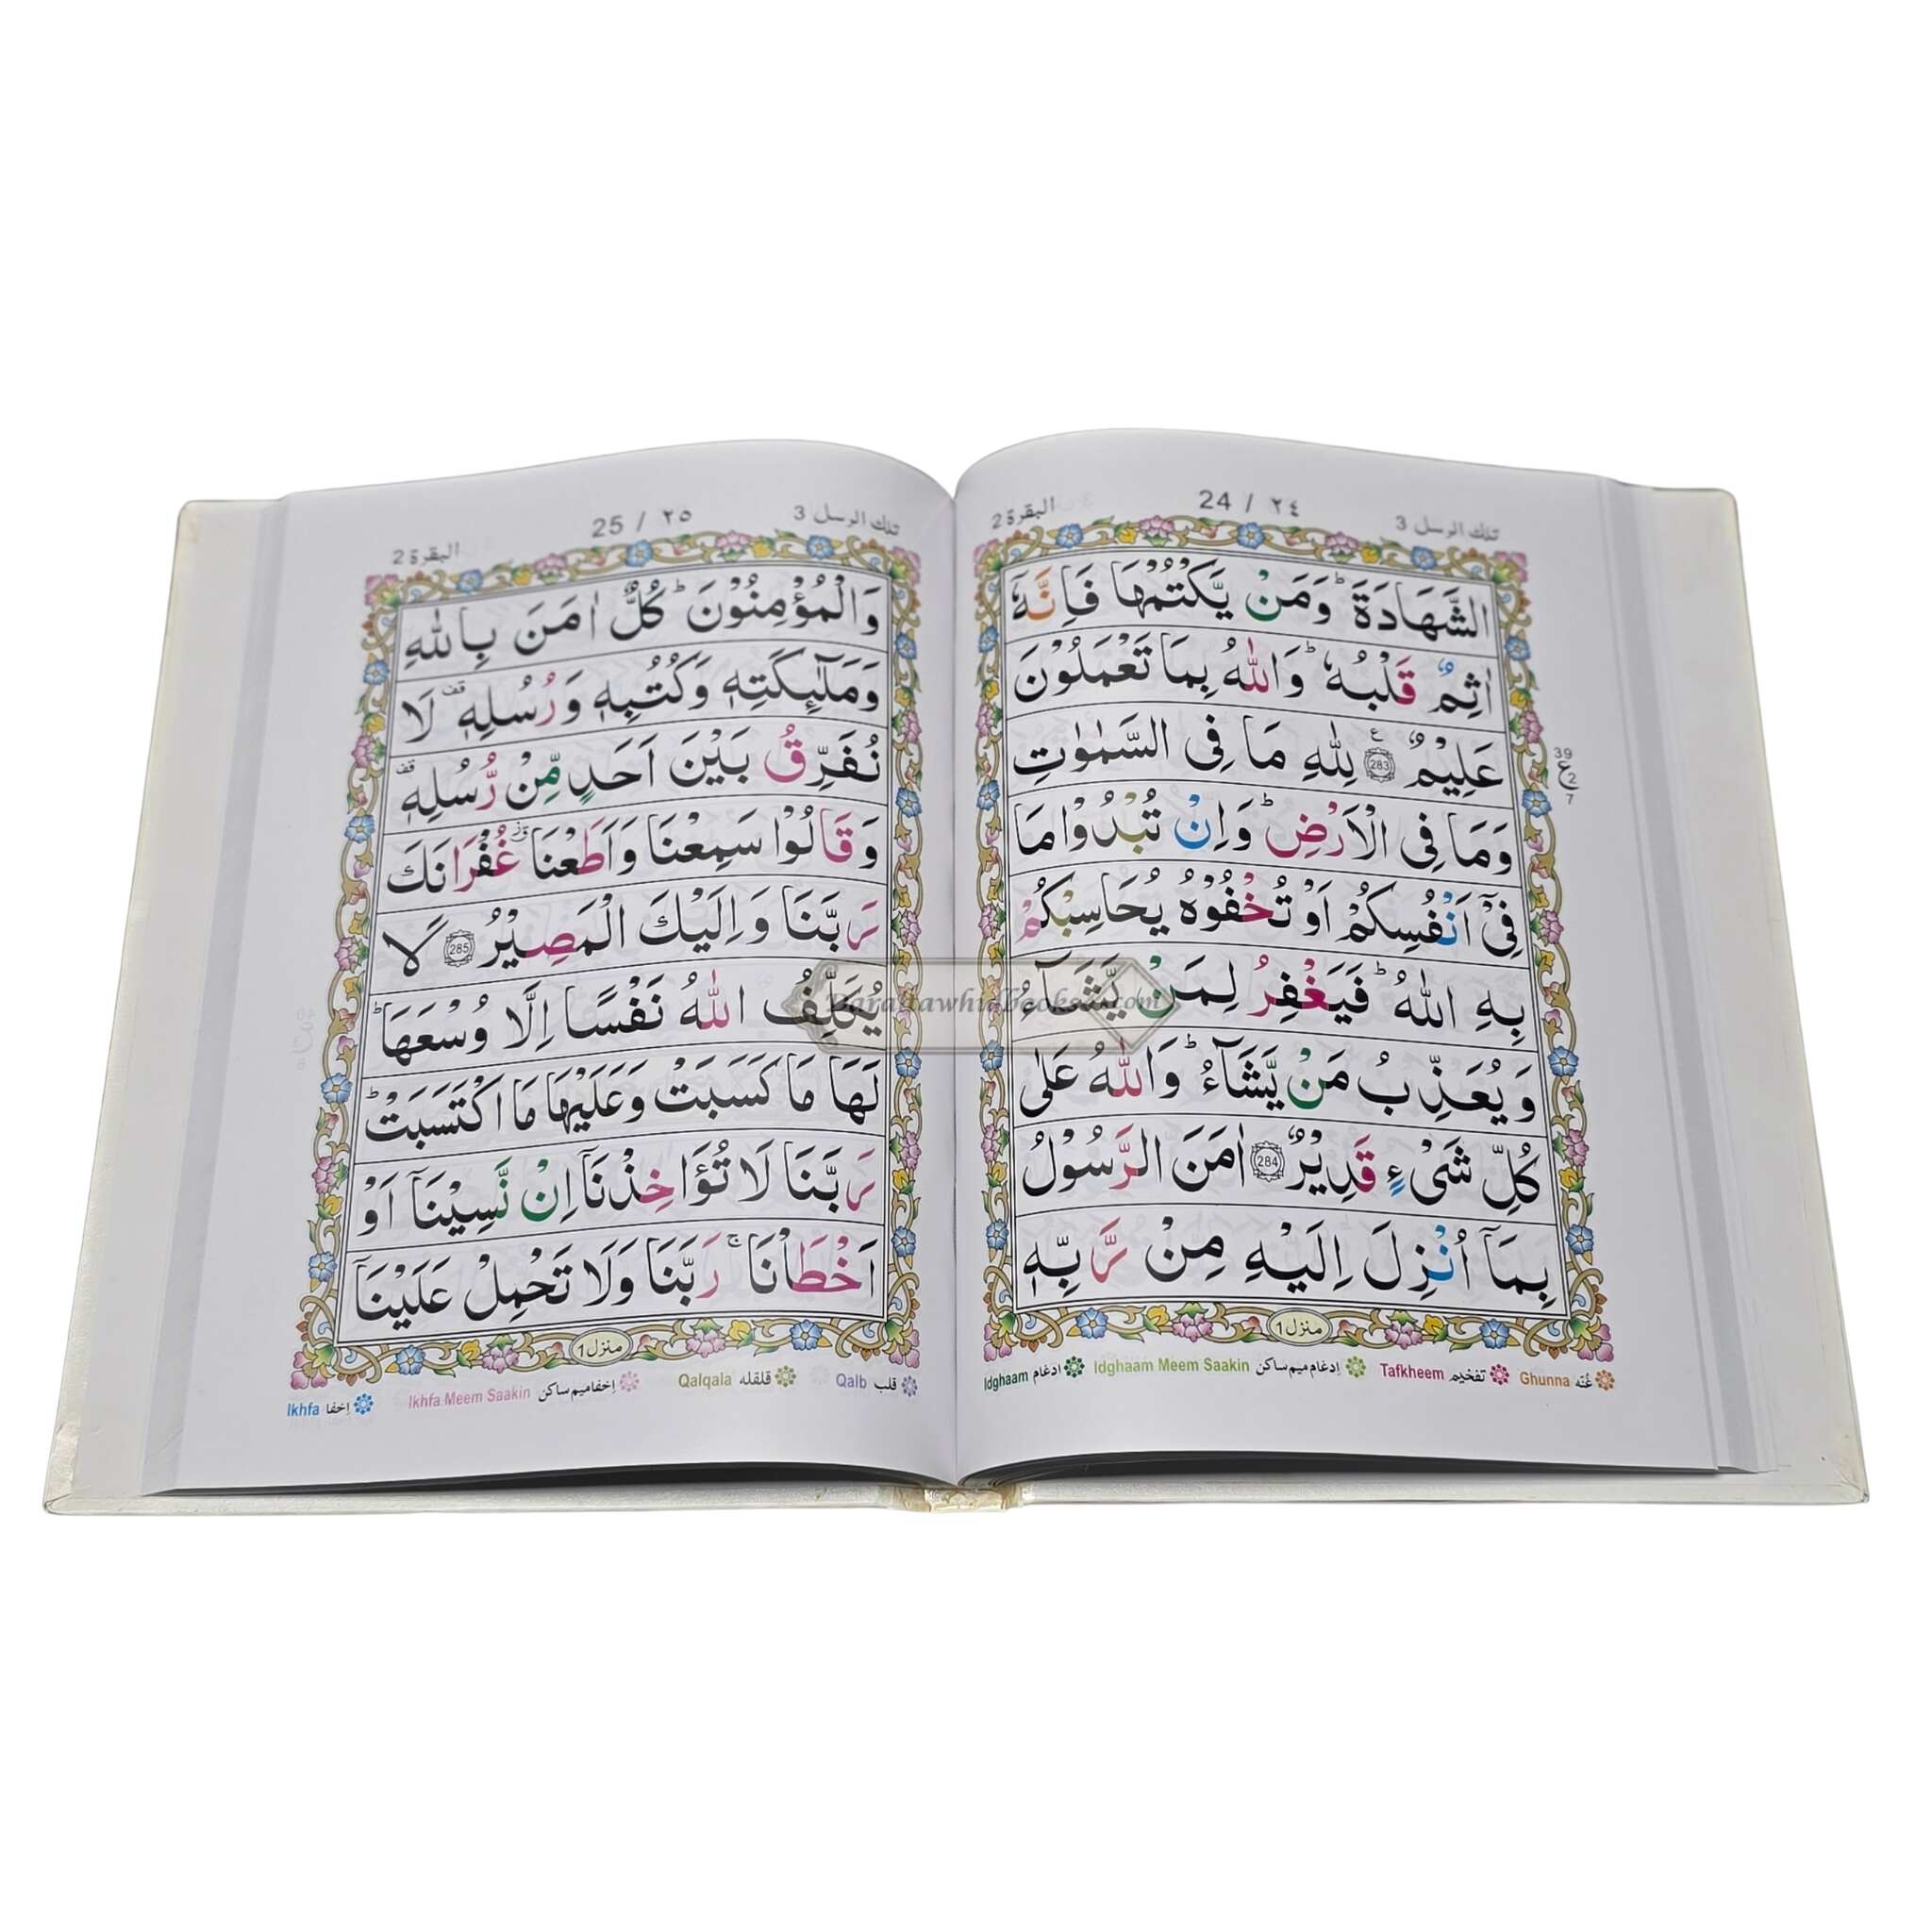 تلك الرسل 3
24 / ٢٤
البقرة 2
الشَّهَادَةَ ؕ وَمَنْ يَّكْتُمْهَا فَاِنَّهٗۤ
اٰثِمٌ قَلْبُهٗ ؕ وَاللّٰهُ بِمَا تَعْمَلُوْنَ
عَلِيْمٌ ۧ 283 لِلّٰهِ مَا فِى السَّمٰوٰتِ
وَمَا فِى الْاَرْضِ ؕ وَاِنْ تُبْدُوْا مَا
فِىْۤ اَنْفُسِكُمْ اَوْ تُخْفُوْهُ يُحَاسِبْكُمْ
بِهِ اللّٰهُ ؕ فَيَغْفِرُ لِمَنْ يَّشَآءُ
وَيُعَذِّبُ مَنْ يَّشَآءُ ؕ وَاللّٰهُ عَلٰى
كُلِّ شَىْءٍ قَدِيْرٌ 284 اٰمَنَ الرَّسُوْلُ
بِمَاۤ اُنْزِلَ اِلَيْهِ مِنْ رَّبِّهٖ
39
ع 2
7
منزل 1
غُنّه Ghunna
تفخيم Tafkheem
اِدغام ميم ساكن Idghaam Meem Saakin
ادغام Idghaam
تلك الرسل 3
25 / ٢٥
البقرة 2
وَالْمُؤْمِنُوْنَ ؕ كُلٌّ اٰمَنَ بِاللّٰهِ
وَمَلٰٓئِكَتِهٖ وَكُتُبِهٖ وَرُسُلِهٖ قف لَا
نُفَرِّقُ بَيْنَ اَحَدٍ مِّنْ رُّسُلِهٖ قف
وَقَالُوْا سَمِعْنَا وَاَطَعْنَا غُفْرَانَكَ
رَبَّنَا وَاِلَيْكَ الْمَصِيْرُ 285 لَا
يُكَلِّفُ اللّٰهُ نَفْسًا اِلَّا وُسْعَهَا ؕ
لَهَا مَا كَسَبَتْ وَعَلَيْهَا مَا اكْتَسَبَتْ ؕ
رَبَّنَا لَا تُؤَاخِذْنَاۤ اِنْ نَّسِيْنَاۤ اَوْ
اَخْطَاْنَا ۚ رَبَّنَا وَلَا تَحْمِلْ عَلَيْنَاۤ
منزل 1
قلب Qalb
قلقله Qalqala
اِخفا ميم ساكن Ikhfa Meem Saakin
اِخفا Ikhfa